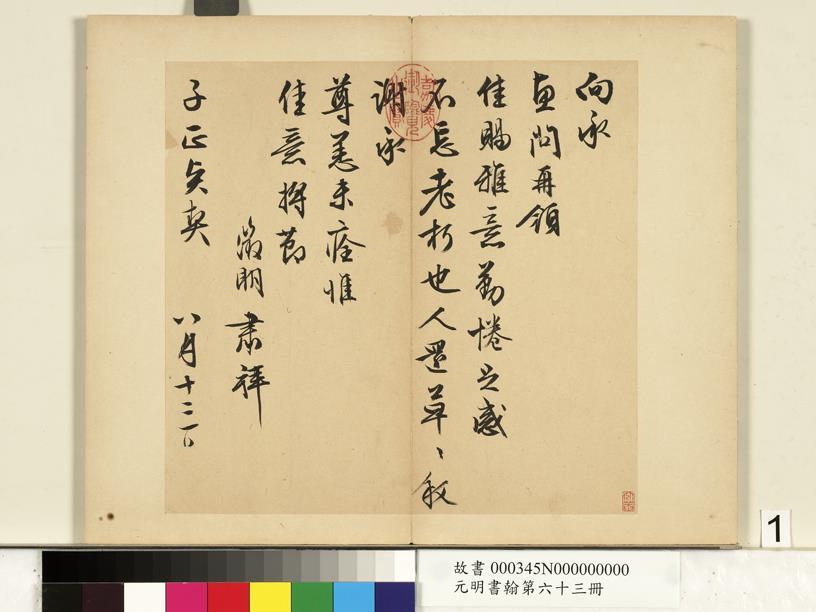 向承
惠問再領
佳賜雅意勤惓足感
不忘老朽也人還草〻敘
謝承
尊恙未痊惟
佳意撙節
徵明肅拜
子正貞契
八月十二日
1
故書 000345N000000000
元明書翰第六十三冊